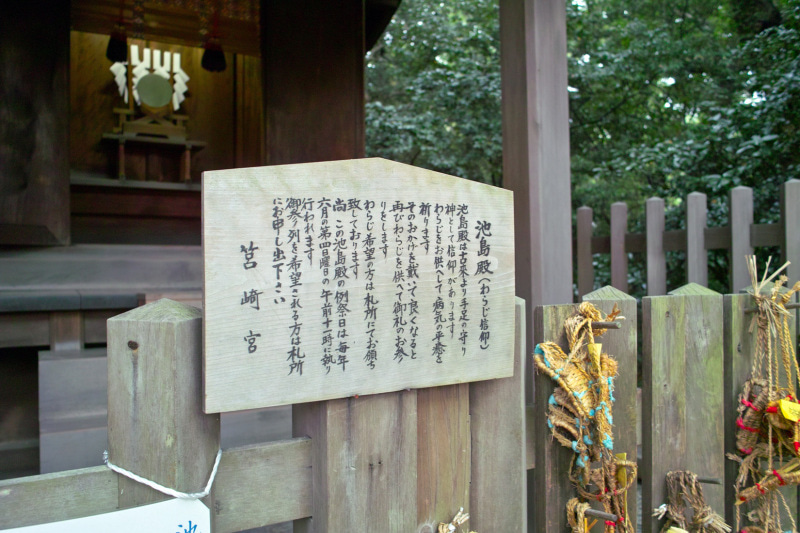 池島殿(わらじ信仰)
池島殿は古来より手足の守り
神として信仰があります
わらじをお供へして病気の平癒を
祈ります
そのおかげを戴いて良くなると
再びわらじを供へて御礼のお参
りをします
わらじ希望の方は札所にてお頒ち
致しております
尚この池島殿の例祭日は毎年
六月の第四日曜日の午前十一時に執り
行われます
御参列を希望される方は札所
にお申し出下さい
筥崎宮
池